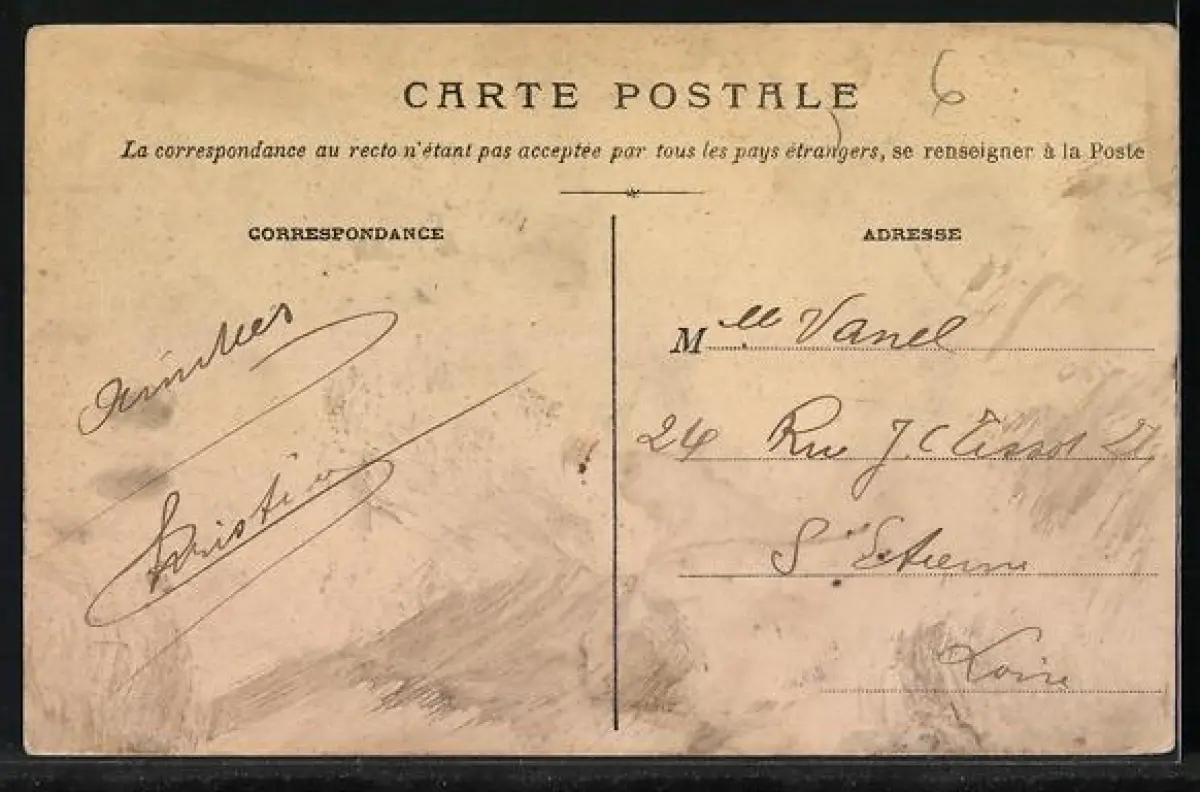 CARTE POSTALE
6
La correspondance au recto n'étant pas acceptée par tous les pays étrangers, se renseigner à la Poste
CORRESPONDANCE
Amitiés
ADRESSE
Mlle Vanel
24 Rue J. C Tissot
St Etienne
Loire